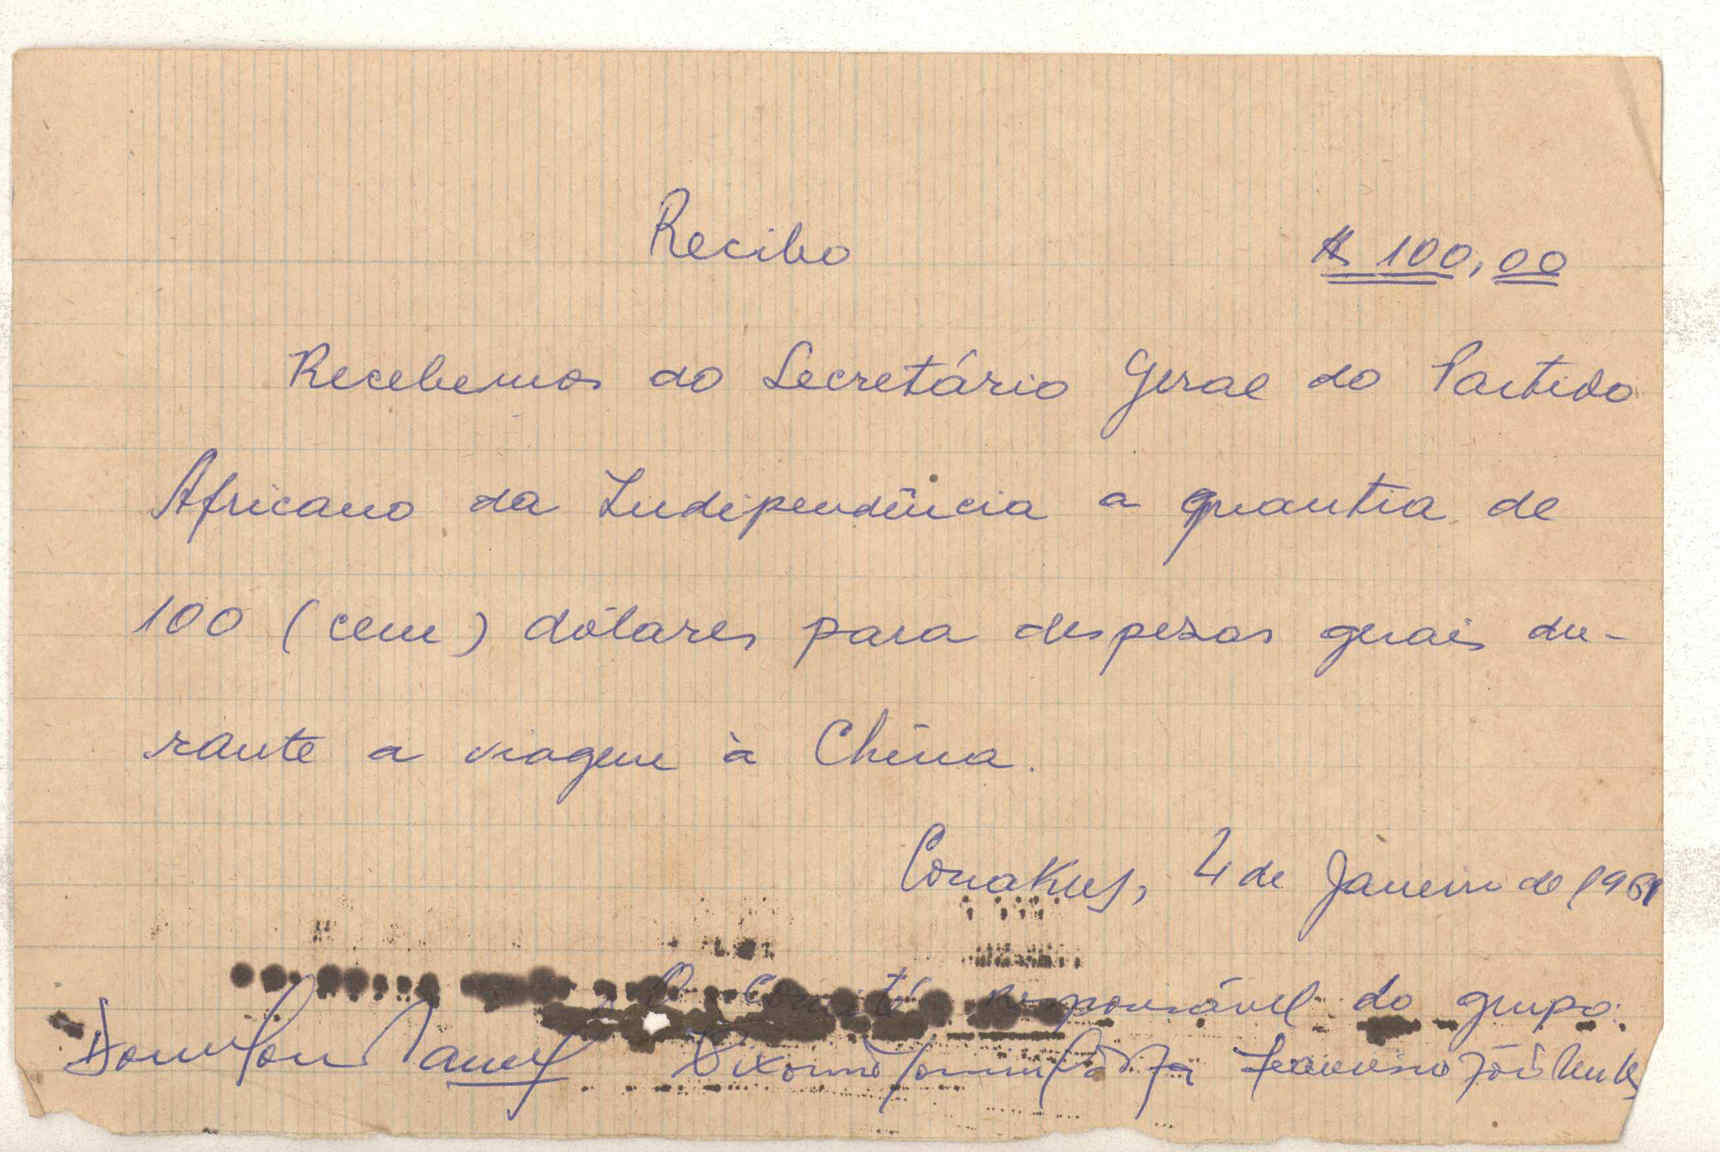 Recibo $ 100,00
Recebemos do Secretário Geral do Partido
Africano da Independência a quantia de
100 (cem) dólares para despesas gerais du-
rante a viagem à China.
Conakry, 4 de Janeiro de 1961
O Comité responsável do grupo